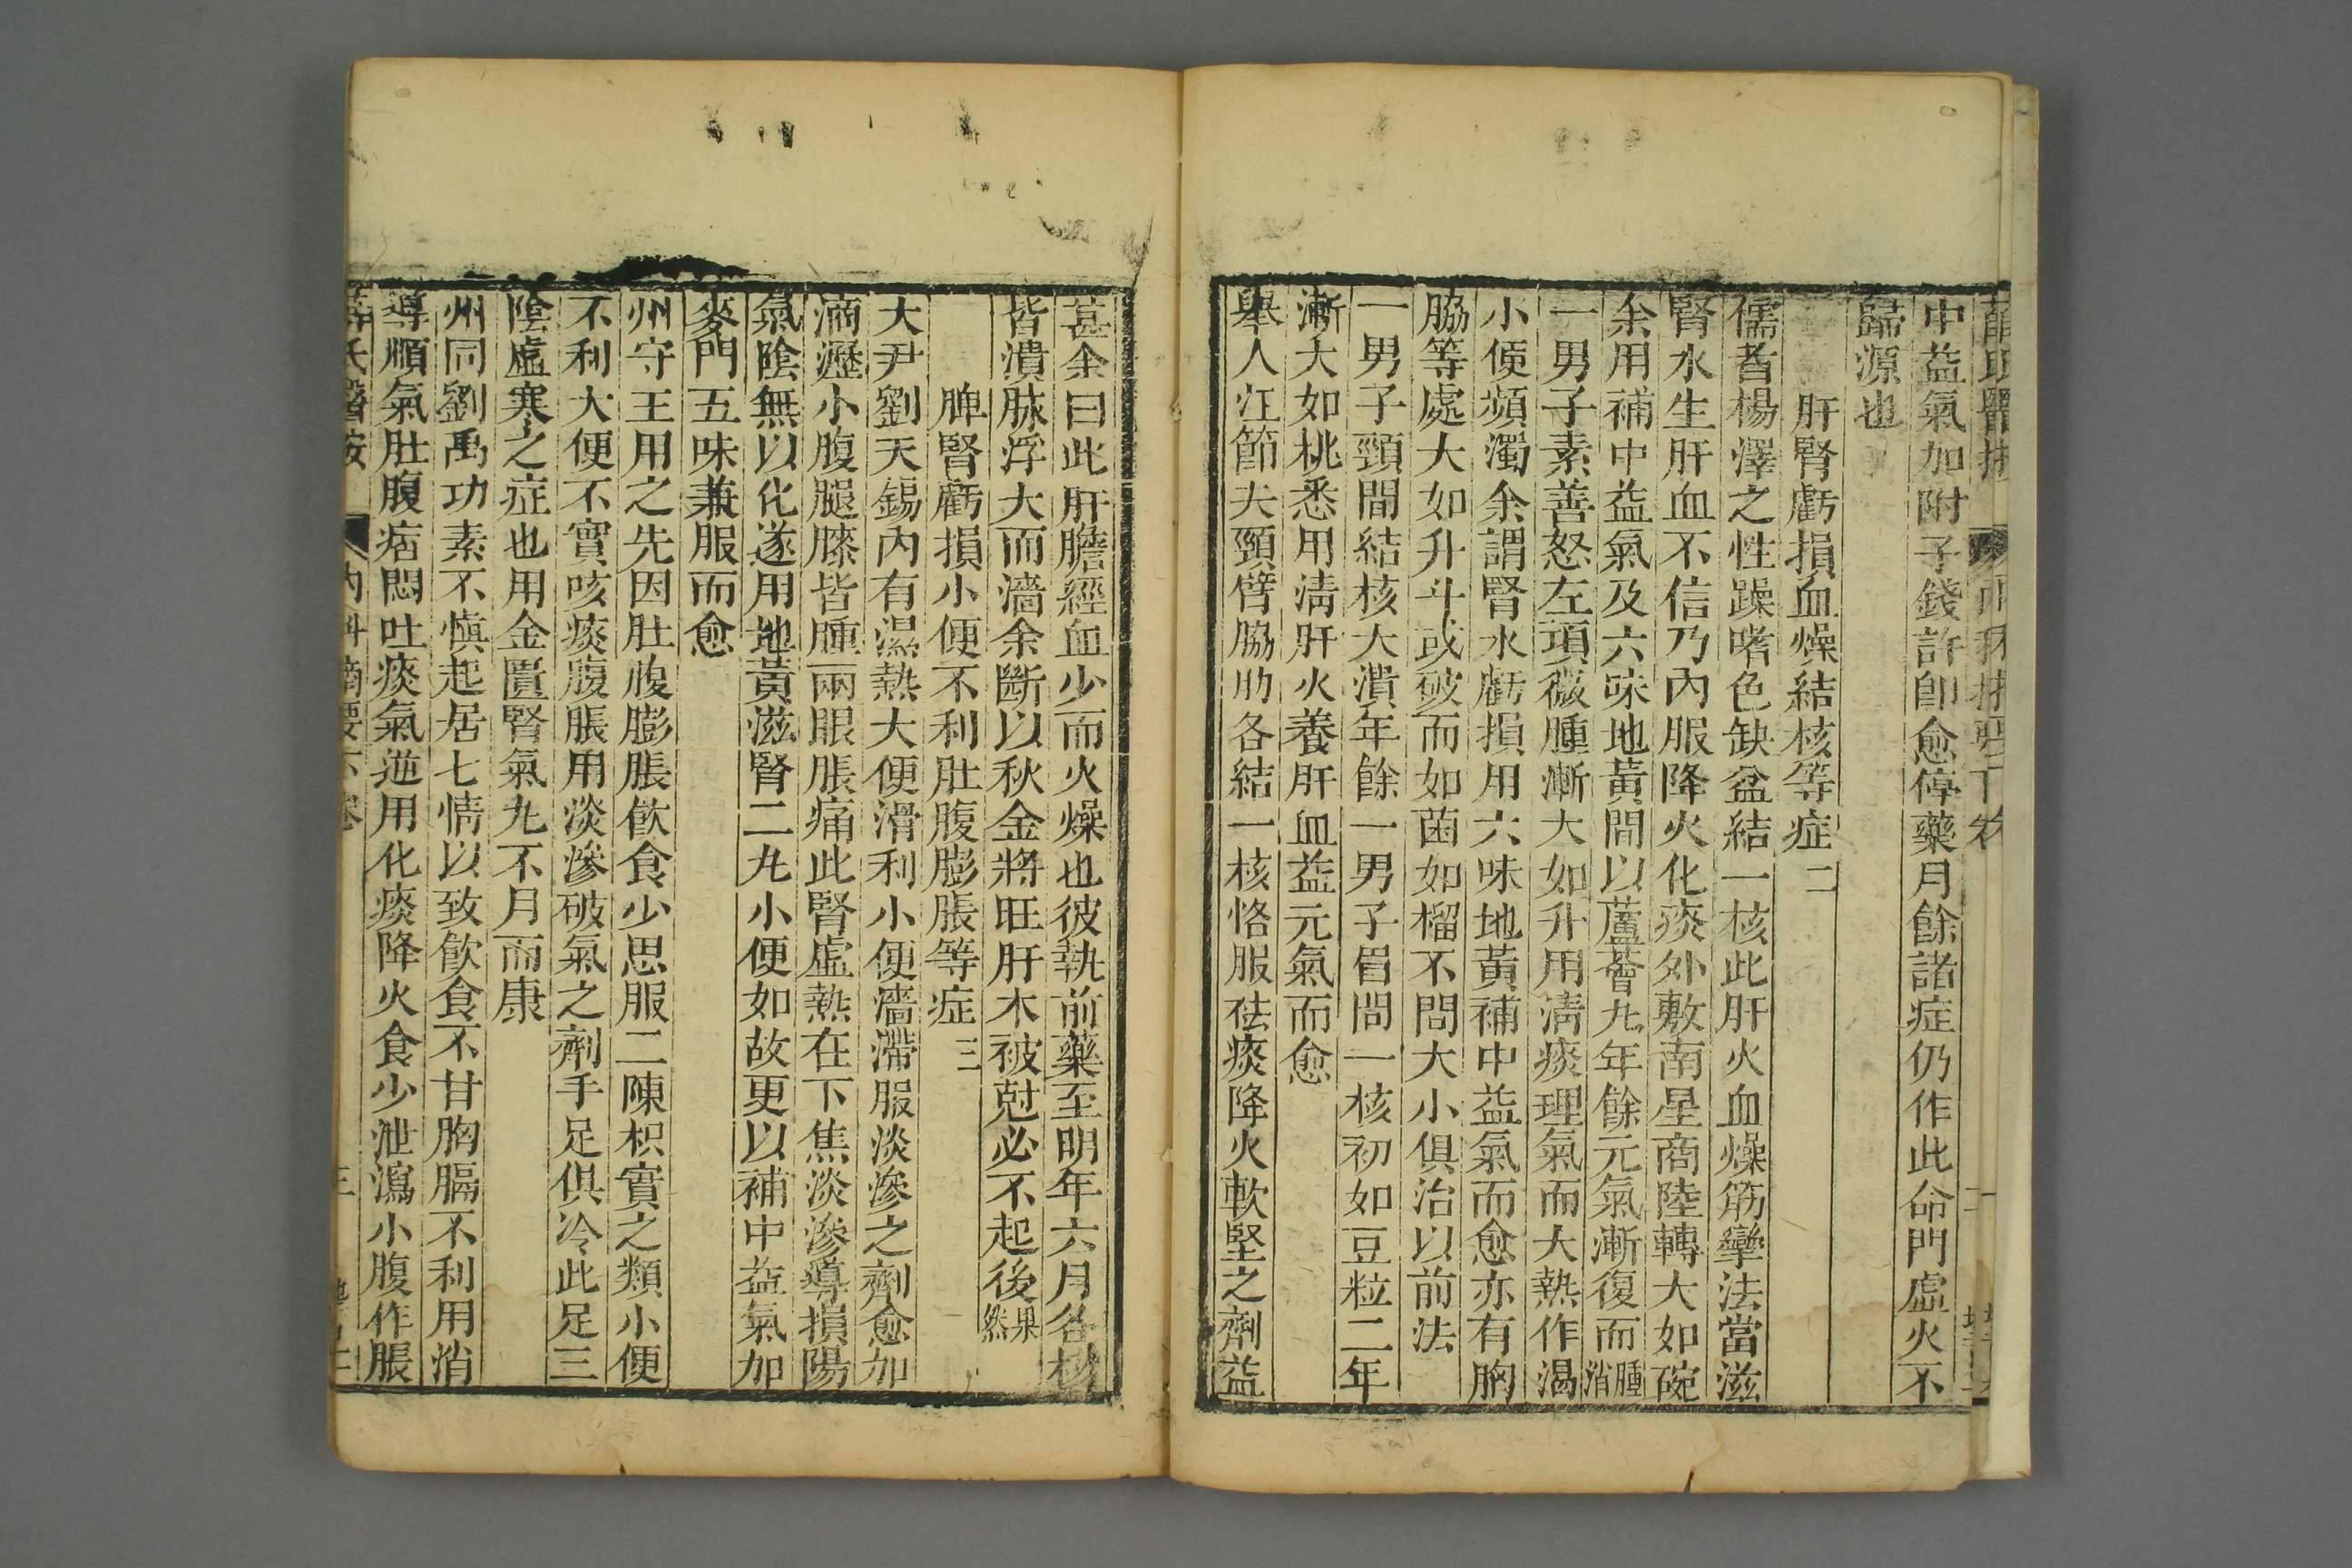 中益氣加附子錢許卽愈停藥月餘諸症仍作此命門虛火不
歸源也
肝腎虧損血燥結核等症二
儒者楊澤之性躁嗜色缺盆結一核此肝火血燥筋攣法當滋
腎水生肝血不信乃內服降火化痰外敷南星商陸轉大如碗
余用補中益氣及六味地黃間以蘆薈丸年餘元氣漸復而腫消
一男子素善怒左項微腫漸大如升用淸痰理氣而大熱作渴
小便頻濁余謂腎水虧損用六味地黃補中益氣而愈亦有胸
脇等處大如升斗或破而如菌如榴不問大小俱治以前法
一男子頸間結核大潰年餘一男子眉間一核初如豆粒二年
漸大如桃悉用淸肝火養肝血益元氣而愈
舉人江節夫頸臂脇肋各結一核恪服祛痰降火軟堅之劑益
甚余曰此肝膽經血少而火燥也彼執前藥至明年六月各核
皆潰脉浮大而濇余斷以秋金將旺肝木被尅必不起後果然
脾腎虧損小便不利肚腹膨脹等症三
大尹劉天錫內有濕熱大便滑利小便濇滯服淡滲之劑愈加
滴瀝小腹腿膝皆腫兩眼脹痛此腎虛熱在下焦淡滲導損陽
氣陰無以化遂用地黃滋腎二丸小便如故更以補中益氣加
麥門五味兼服而愈
州守王用之先因肚腹膨脹飮食少思服二陳枳實之類小便
不利大便不實咳痰腹脹用淡滲破氣之劑手足俱冷此足三
陰虛寒之症也用金匱腎氣丸不月而康
州同劉禹功素不慎起居七情以致飮食不甘胸膈不利用消
導順氣肚腹痞悶吐痰氣逆用化痰降火食少泄瀉小腹作脹
薛氏醫按 內科摘要下卷 三